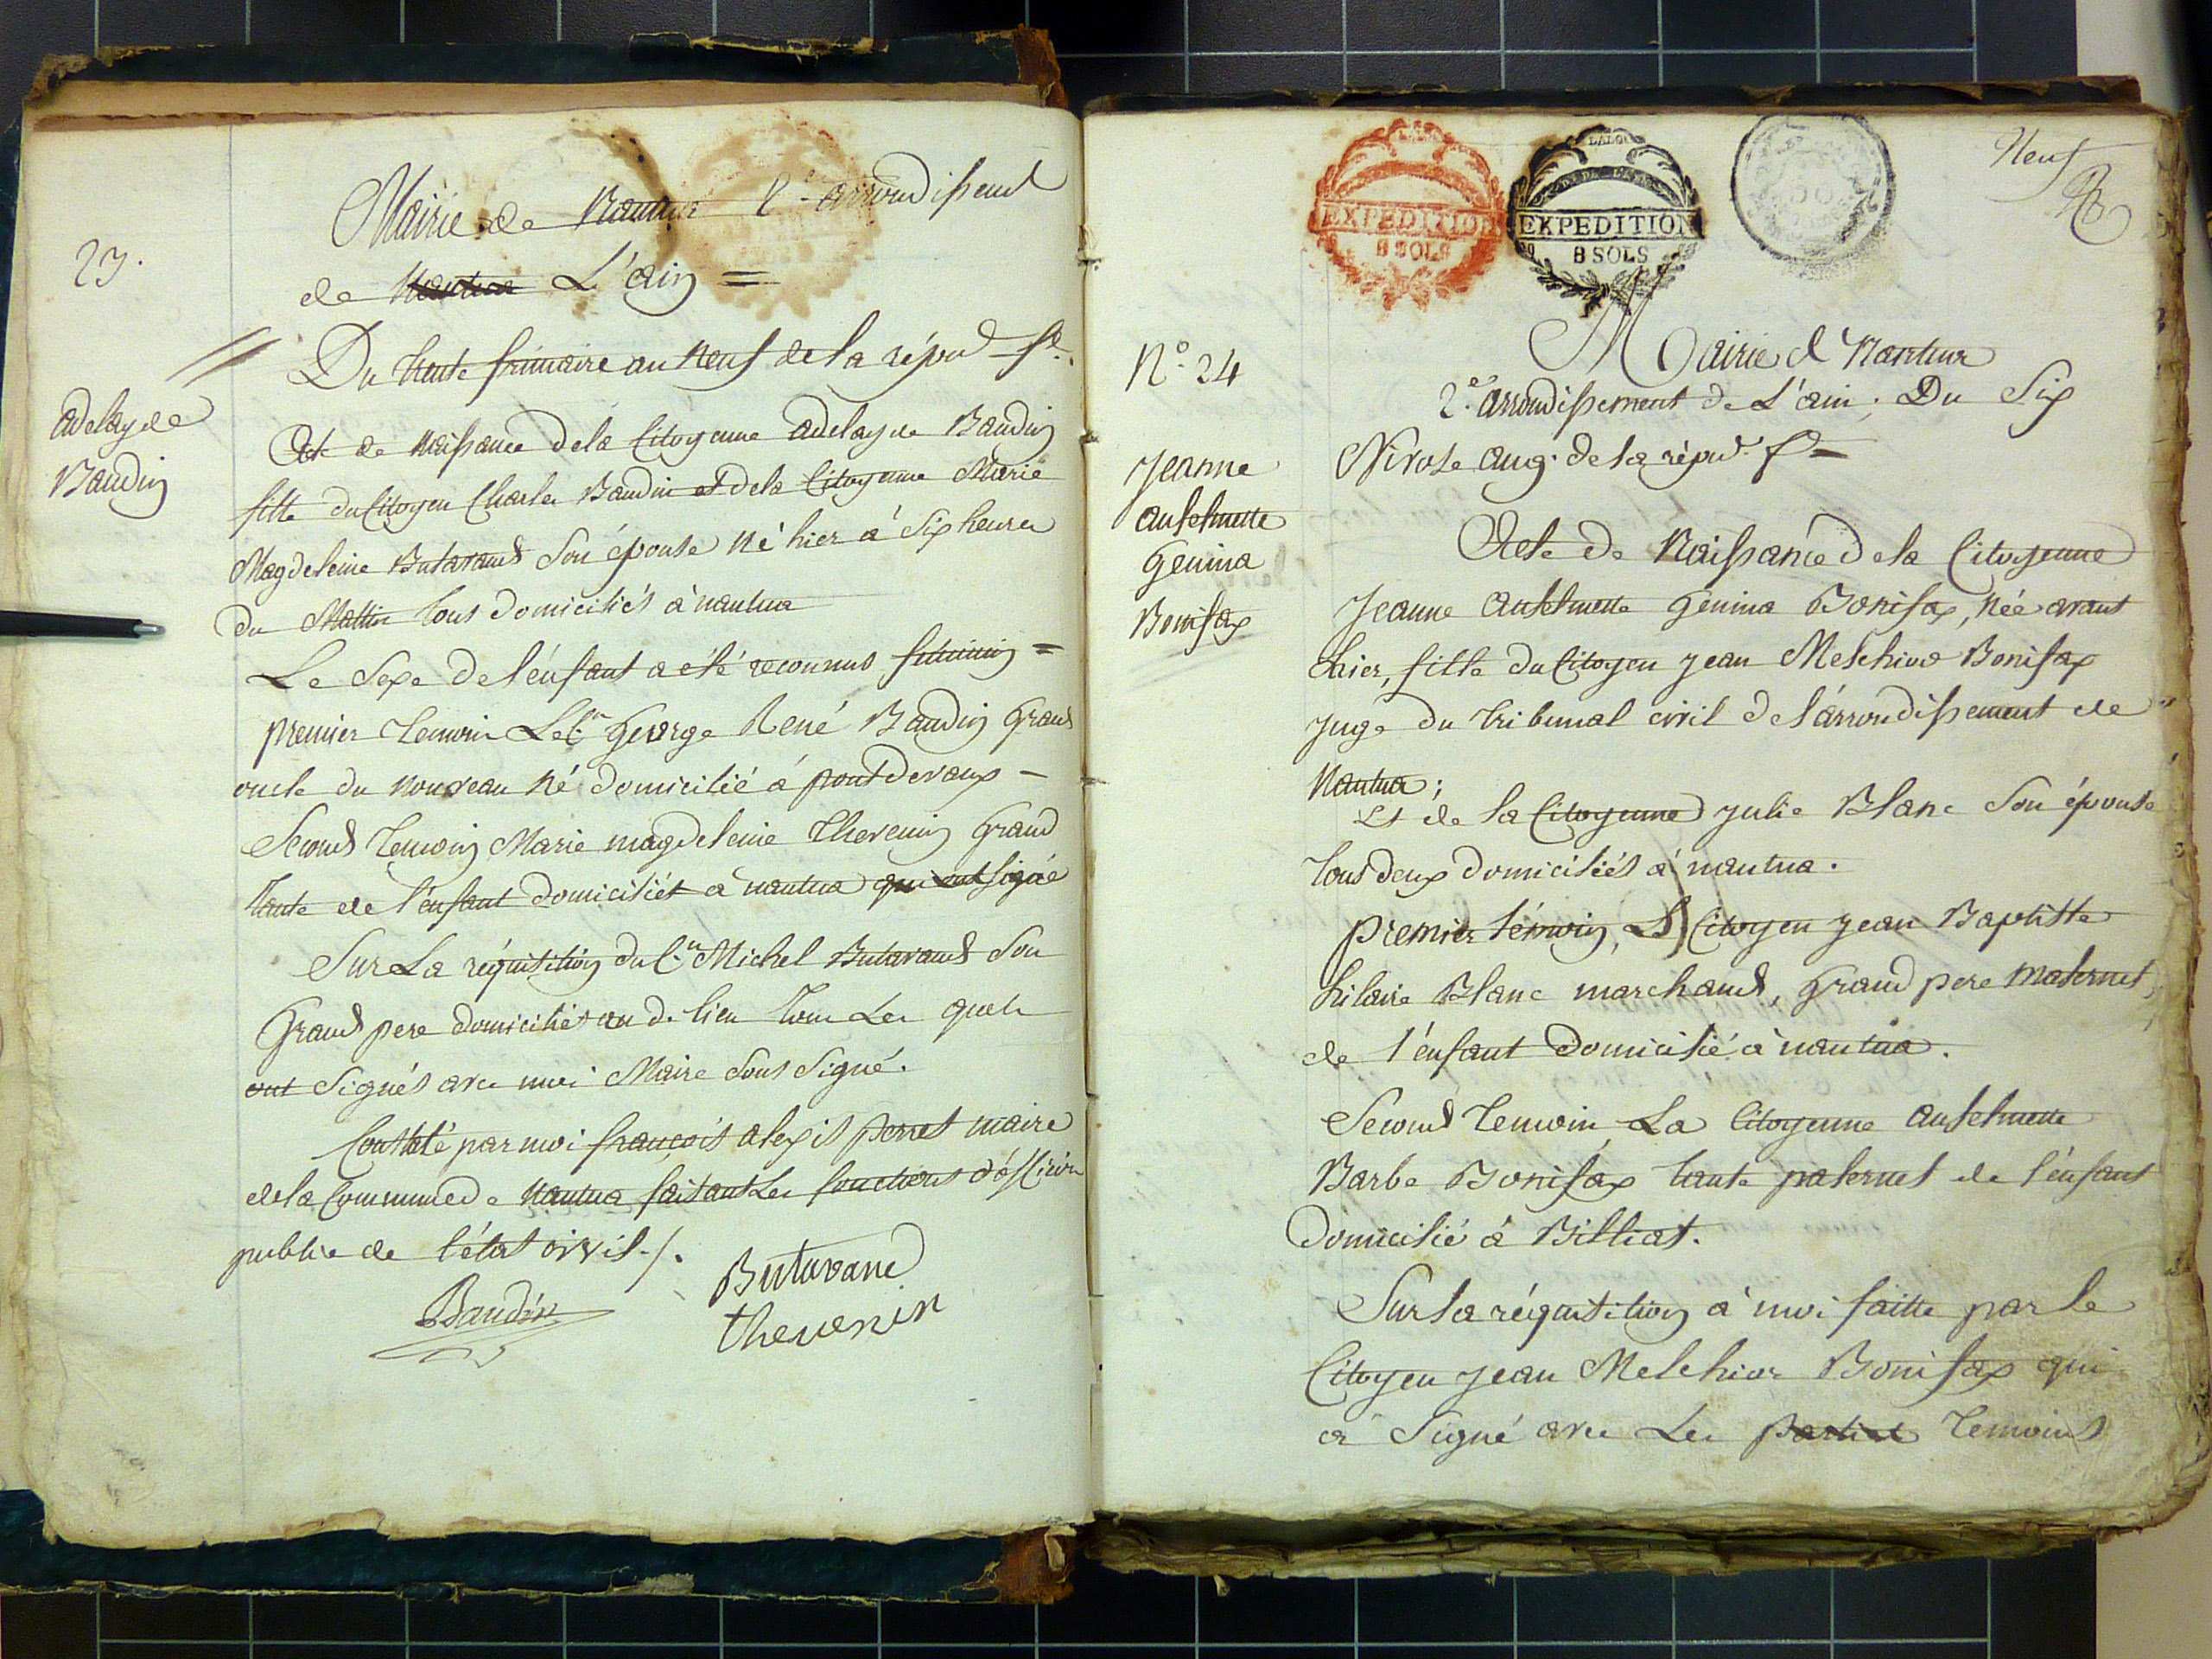 23.
adelayde
Baudin
Mairie de Nantua 2e arrondissemt
de Nantua L'ain =
Du trente frimaire an neuf de la répud fe.
Acte de Naissance de la Citoyenne adelayde Baudin
fille du Citoyen Charles Baudin et de la Citoyenne Marie
Magdeleine Butavand Son épouse né hier à Six heures
du Mattin tous domiciliés à nantua
Le Sexe de l'énfant a été reconnus féminin =
premier temoin Le Cn George René Baudin Grand
oncle du nouveau né domicilié à pont devaux -
Second temoin Marie magdeleine thevenin Grand
tante de l'énfant domiciliét a nantua qui ont signé
Sur La réquisition du Cn Michel Butavand Son
Grand pere domicilié au d. lieu tous Les quels
ont Signés avec moi Maire Sous Signé.
Constaté par moi françois alexis perret maire
de la Commune de Nantua faisant Les fonctions d'officier
public de l'état civil./.
Baudin
Butavand
thevenin
EXPEDITION
8 SOLS
EXPEDITION
8 SOLS
Neuf
No. 24
Jeanne
anthelmette
Genina
Bonifax
Mairie d Nantua
2e. arrondissement de L'ain; Du Six
Nivose an 9. de la répud. fe
Acte de Naissance de la Citoyenne
Jeanne anthelmette Génina Bonifax, née avant
hier, fille du Citoyen jean Melchior Bonifax
juge du tribunal civil de l'arrondissement de
Nantua;
Et de la Citoyenne julie Blanc Son épouse
tous deux domiciliés à nantua.
premier témoin, Le Citoyen jean Baptiste
hilaire Blanc marchand, grand pere maternel,
de l'énfant domicilié à nantua.
Second temoin La Citoyenne anthelmette
Barbe Bonifax tante paternel de l'énfant
domicilié à Billiat.
Sur la réquisition à moi faitte par le
Citoyen jean Melchior Bonifax qui
a Signé avec Les parties temoins